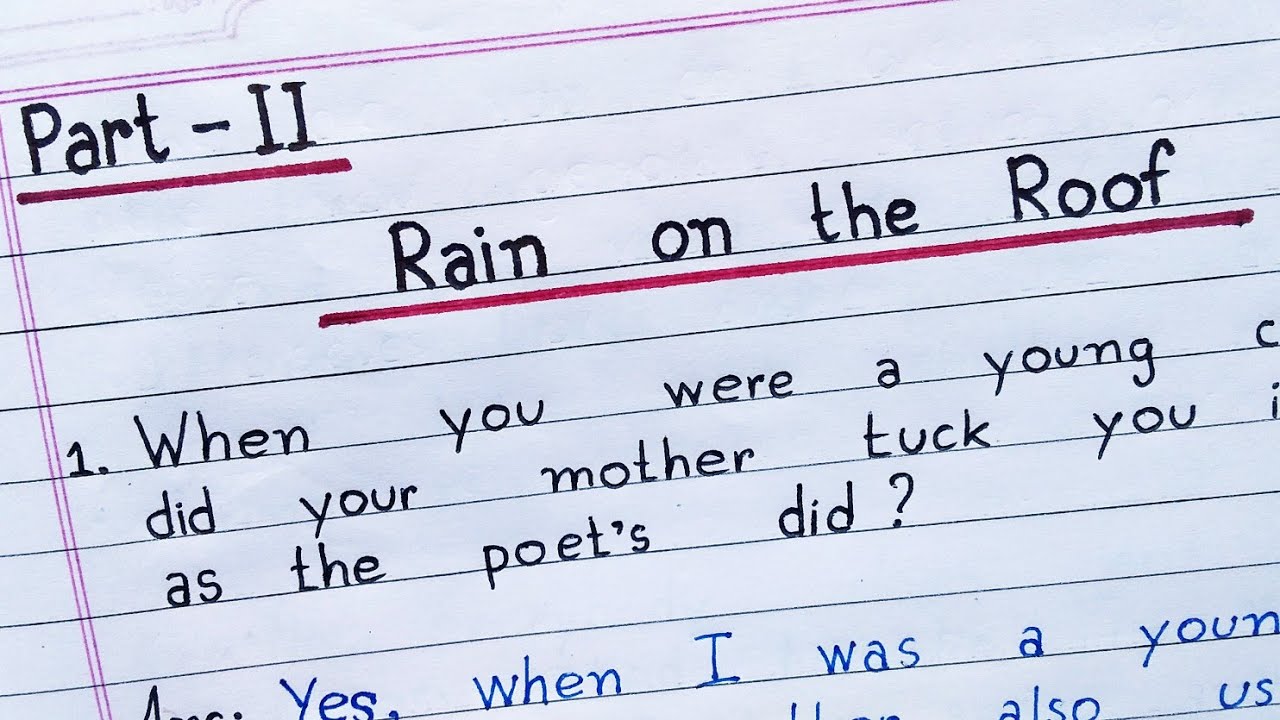 Part - II
Rain on the Roof
1. When you were a young
did your mother tuck you
as the poet's did ?
Ans. Yes, when I was a
also